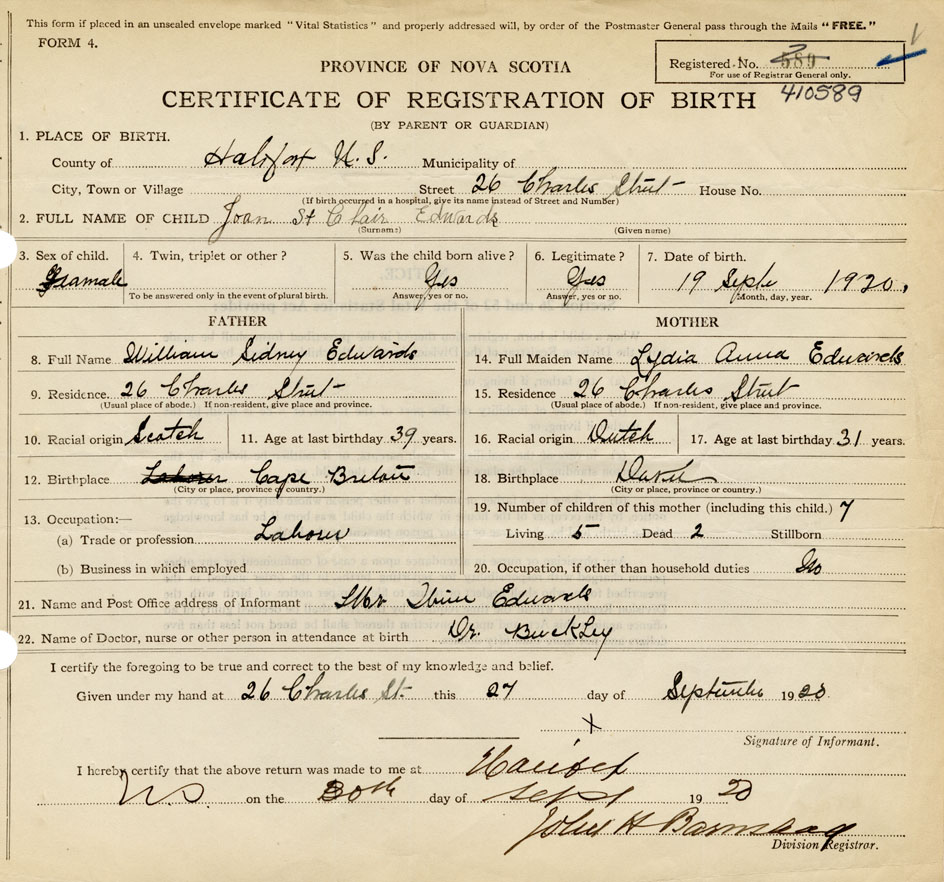 This form if placed in an unsealed envelope marked "Vital Statistics" and properly addressed will, by order of the Postmaster General pass through the Mails "FREE."
FORM 4.
Registered No. 589
For use of Registrar General only.
410589
PROVINCE OF NOVA SCOTIA
CERTIFICATE OF REGISTRATION OF BIRTH
(BY PARENT OR GUARDIAN)
1. PLACE OF BIRTH.
County of Halifax N.S. Municipality of
City, Town or Village Street 26 Charles Street House No.
(If birth occurred in a hospital, give its name instead of Street and Number)
2. FULL NAME OF CHILD Joan St Clair Edwards
(Surname) (Given name)
3. Sex of child. 4. Twin, triplet or other? 5. Was the child born alive? 6. Legitimate? 7. Date of birth.
Feamale Yes Yes 19 Septe 1920.
To be answered only in the event of plural birth. Answer, yes or no. Answer, yes or no. Month, day, year.
FATHER
8. Full Name William Sidney Edwards
9. Residence. 26 Charles Street
(Usual place of abode.) If non-resident, give place and province.
10. Racial origin Scotch 11. Age at last birthday 39 years.
12. Birthplace Laborer Cape Breton
(City or place, province or country.)
13. Occupation:—
(a) Trade or profession Laborer
(b) Business in which employed
MOTHER
14. Full Maiden Name Lydia Anna Edwards
15. Residence 26 Charles Street
(Usual place of abode.) If non-resident, give place and province.
16. Racial origin Dutch 17. Age at last birthday 31 years.
18. Birthplace Dutch
(City or place, province or country.)
19. Number of children of this mother (including this child.) 7
Living 5 Dead 2 Stillborn
20. Occupation, if other than household duties No
21. Name and Post Office address of Informant Edwards
22. Name of Doctor, nurse or other person in attendance at birth Dr. Buckley
I certify the foregoing to be true and correct to the best of my knowledge and belief.
Given under my hand at 26 Charles St. this 27 day of September 1920
X
Signature of Informant.
I hereby certify that the above return was made to me at Halifax
N.S. on the 30th day of Sept 1920
John H Barnstead
Division Registrar.